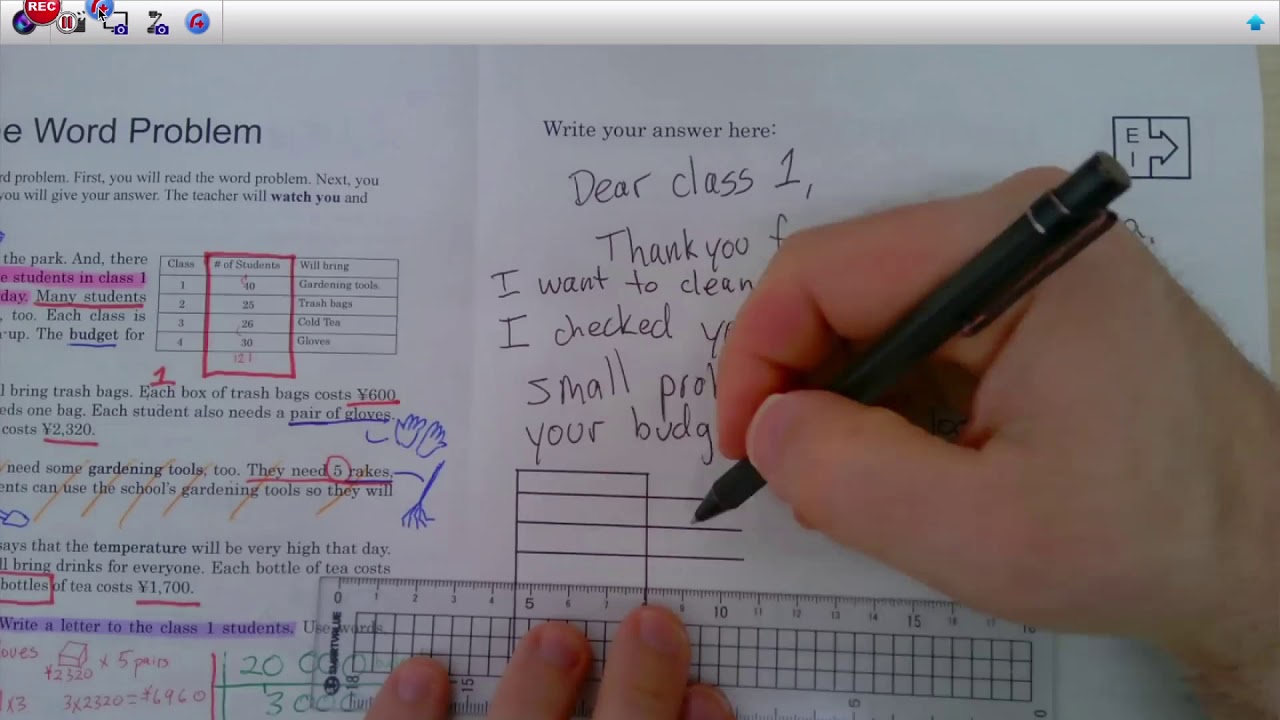 REC
e Word Problem
rd problem. First, you will read the word problem. Next, you
you will give your answer. The teacher will watch you and
the park. And, there
e students in class 1
day. Many students
, too. Each class is
-up. The budget for
Class # of Students Will bring
1 40 Gardening tools.
2 25 Trash bags
3 26 Cold Tea
4 30 Gloves
121
1
l bring trash bags. Each box of trash bags costs ¥600
eds one bag. Each student also needs a pair of gloves.
costs ¥2,320.
need some gardening tools, too. They need 5 rakes,
ents can use the school's gardening tools so they will
says that the temperature will be very high that day.
ll bring drinks for everyone. Each bottle of tea costs
bottles of tea costs ¥1,700.
Write a letter to the class 1 students. Use words,
oves ¥2320 x 5 pairs
x3 3x2320=¥6960
20 000
3 000
Write your answer here:
E
I
Dear class 1,
Thank you f
I want to clean
I checked y
small pro
your budg
0 1 2 3 4 5 6 7 8 9 10 11 12 13 14 15 16 17 18